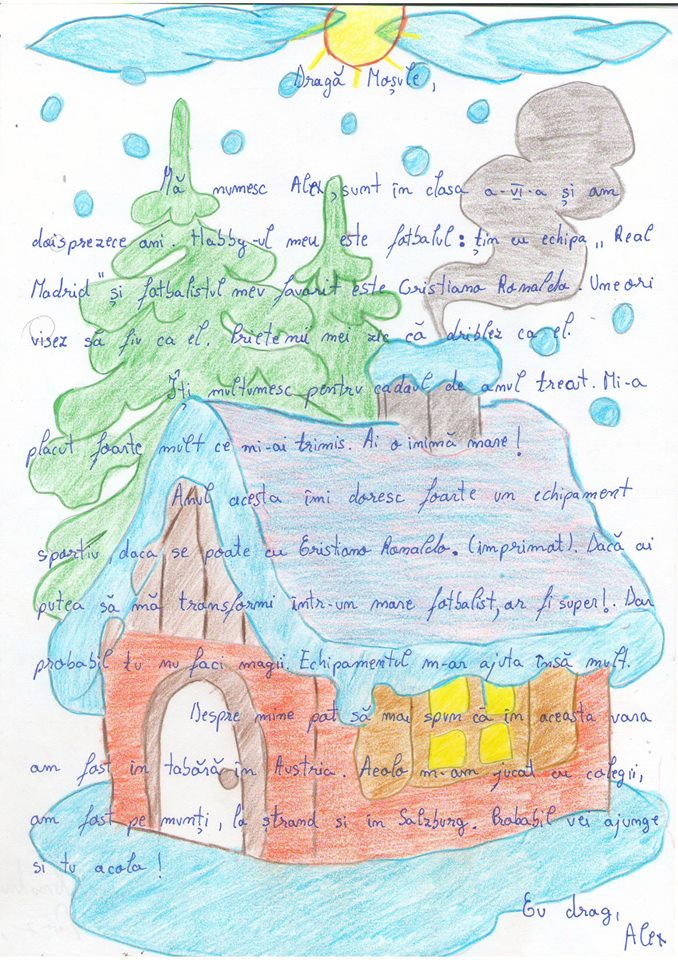 Dragă Moșule,
Mă numesc Alex, sunt în clasa a-VI-a și am
doisprezece ani. Habby-ul meu este fotbalul: țin cu echipa „Real
Madrid" și fotbalistul meu favorit este Cristiano Ronaldo. Uneori
visez să fiu ca el. Prietenii mei zic că driblez ca el.
Îți multumesc pentru cadoul de anul trecut. Mi-a
placut foarte mult ce mi-ai trimis. Ai o inimă mare!
Anul acesta îmi doresc foarte un echipament
sportiv, daca se poate cu Cristiano Ronaldo. (imprimat). Dacă ai
putea să mă transformi într-un mare fotbalist, ar fi super!. Dar
probabil tu nu faci magii. Echipamentul m-ar ajuta însă mult.
Despre mine pot să mai spun că în aceasta vara
am fost în tabără în Austria. Acolo m-am jucat cu colegii,
am fost pe munți, la ștrand si în Salzburg. Probabil vei ajunge
si tu acolo!
Cu drag,
Alex